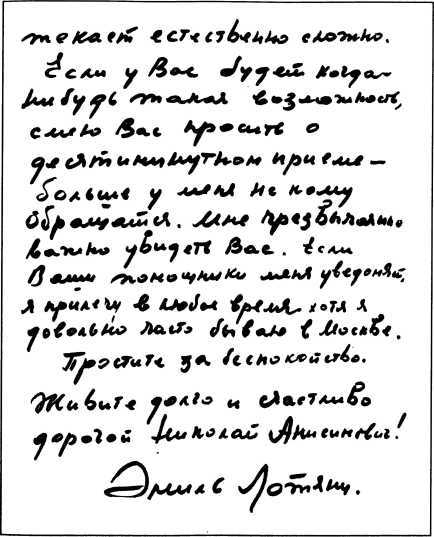 текает естественно сложно.
Если у Вас будет когда-
нибудь такая возможность,
смею Вас просить о
десятиминутном приеме –
больше у меня не кому
обращатся. Мне чрезвычайно
важно увидеть Вас. Если
Ваши помощники меня уведомят,
я прилечу в любое время хотя я
довольно часто бываю в Москве.
Простите за беспокойство.
Живите долго и счастливо
дорогой Николай Анисимович!
Эмиль Лотяну.